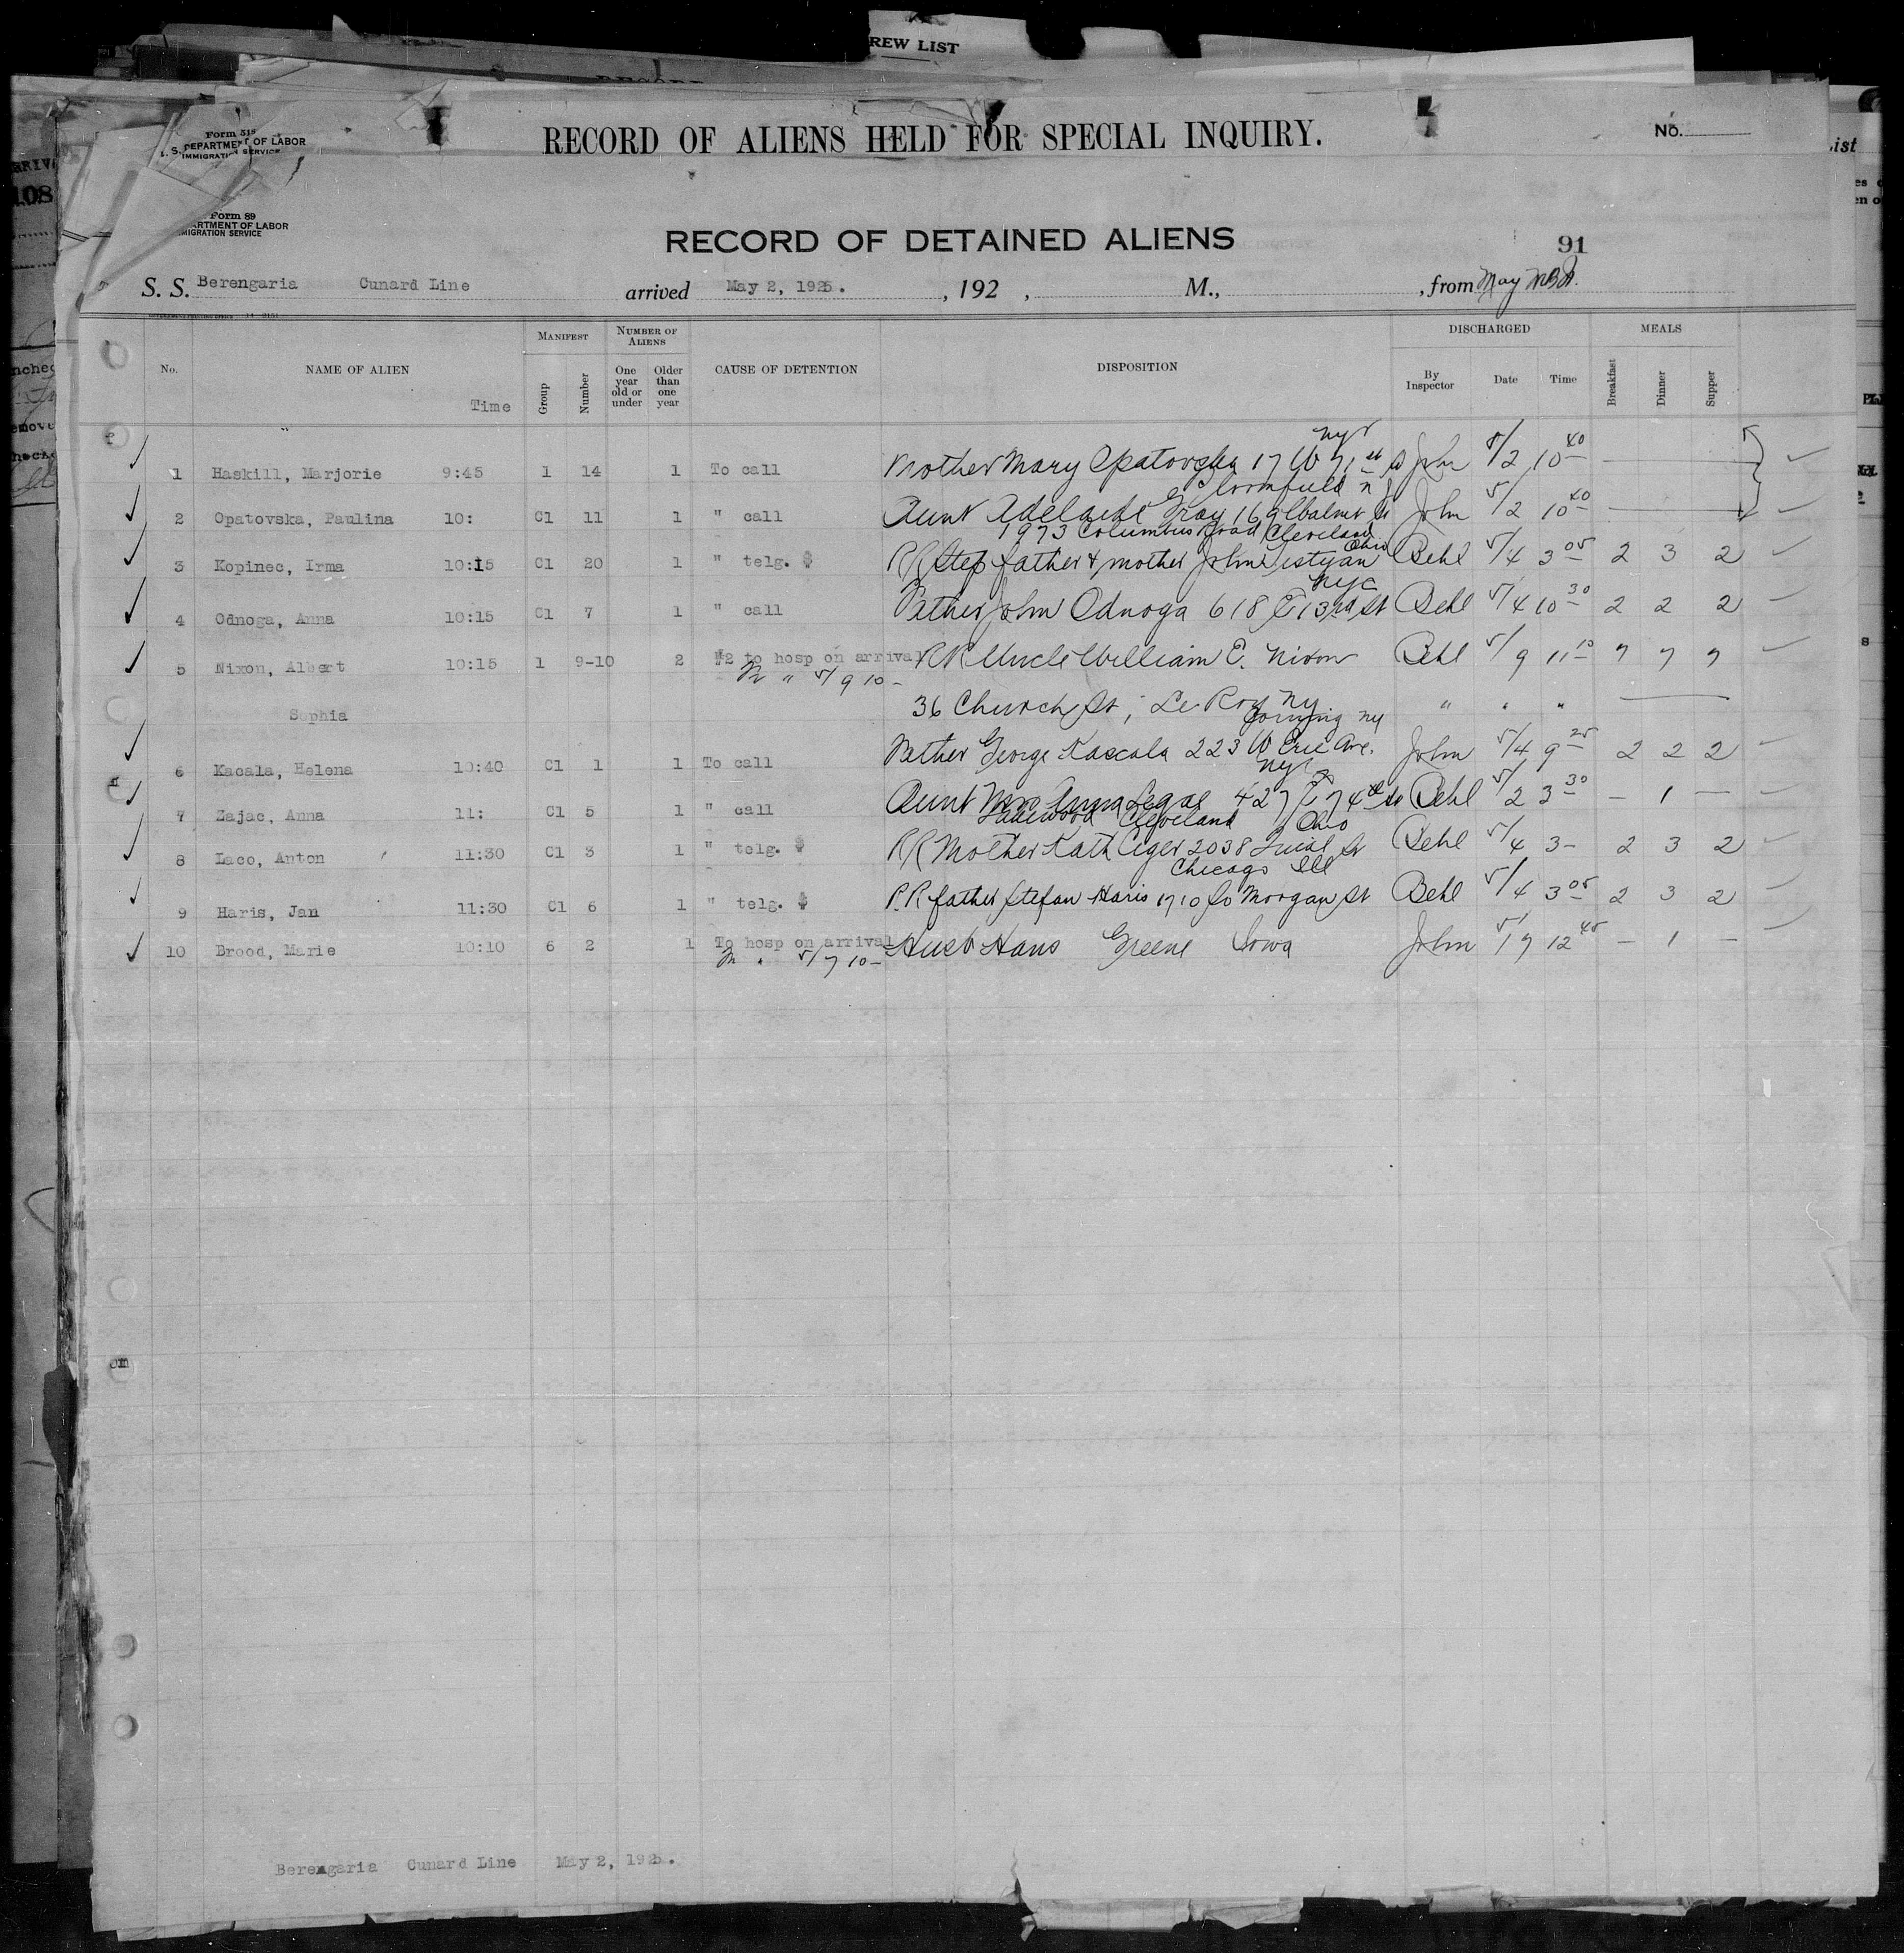 REW LIST
Form 518
S. DEPARTMENT OF LABOR
IMMIGRATION SERVICE
RECORD OF ALIENS HELD FOR SPECIAL INQUIRY.
No.
ist
108
Form 89
ARTMENT OF LABOR
MIGRATION SERVICE
RECORD OF DETAINED ALIENS
91
S. S. Berengaria Cunard Line arrived May 2, 1925. , 192 , M., , from May
No. NAME OF ALIEN Time MANIFEST Group Number NUMBER OF ALIENS One year old or under Older than one year CAUSE OF DETENTION DISPOSITION DISCHARGED By Inspector Date Time MEALS Breakfast Dinner Supper
nyc
1 Haskill, Marjorie 9:45 1 14 1 To call Mother Mary Opatovska 17 W 71st St John 5/2 10 40 — — —
Bloomfield n j
2 Opatovska, Paulina 10: Cl 11 1 " call Aunt Adelaide Gray 169 Walnut St John 5/2 10 40 — — —
1973 Columbus Road Cleveland Ohio
3 Kopinec, Irma 10:15 Cl 20 1 " telg. RR Step father & mother John Behl 5/4 3 05 2 3 2
nyc
4 Odnoga, Anna 10:15 Cl 7 1 " call Father John Odnoga 618 E 13rd St Behl 5/4 10 30 2 2 2
5 Nixon, Albert 10:15 1 9-10 2 #2 to hosp on arrival RR Uncle William E. Nixon Behl 5/9 11 10 7 7 7
" 5/9 10 –
Sophia 36 Church St, Le Roy Ny " " " —
Corning ny
6 Kacala, Helena 10:40 Cl 1 1 To call Father George Kascala 223 W Erie Ave. John 5/4 9 25 2 2 2
nyc
7 Zajac, Anna 11: Cl 5 1 " call Aunt Mrs Anna 427 E 74th St Behl 5/2 3 30 – 1 —
Lakewood Cleveland Ohio
8 Laco, Anton 11:30 Cl 3 1 " telg. RR Mother Kath 2038 St Behl 5/4 3 – 2 3 2
Chicago Ill
9 Haris, Jan 11:30 Cl 6 1 " telg. R.R father Stefan Haris 1710 So Morgan St Behl 5/4 3 05 2 3 2
10 Brood, Marie 10:10 6 2 1 To hosp on arrival Husb Hans Greene Iowa John 5/7 12 45 – 1 –
" 5/7 10 –
Berengaria Cunard Line May 2, 1925.